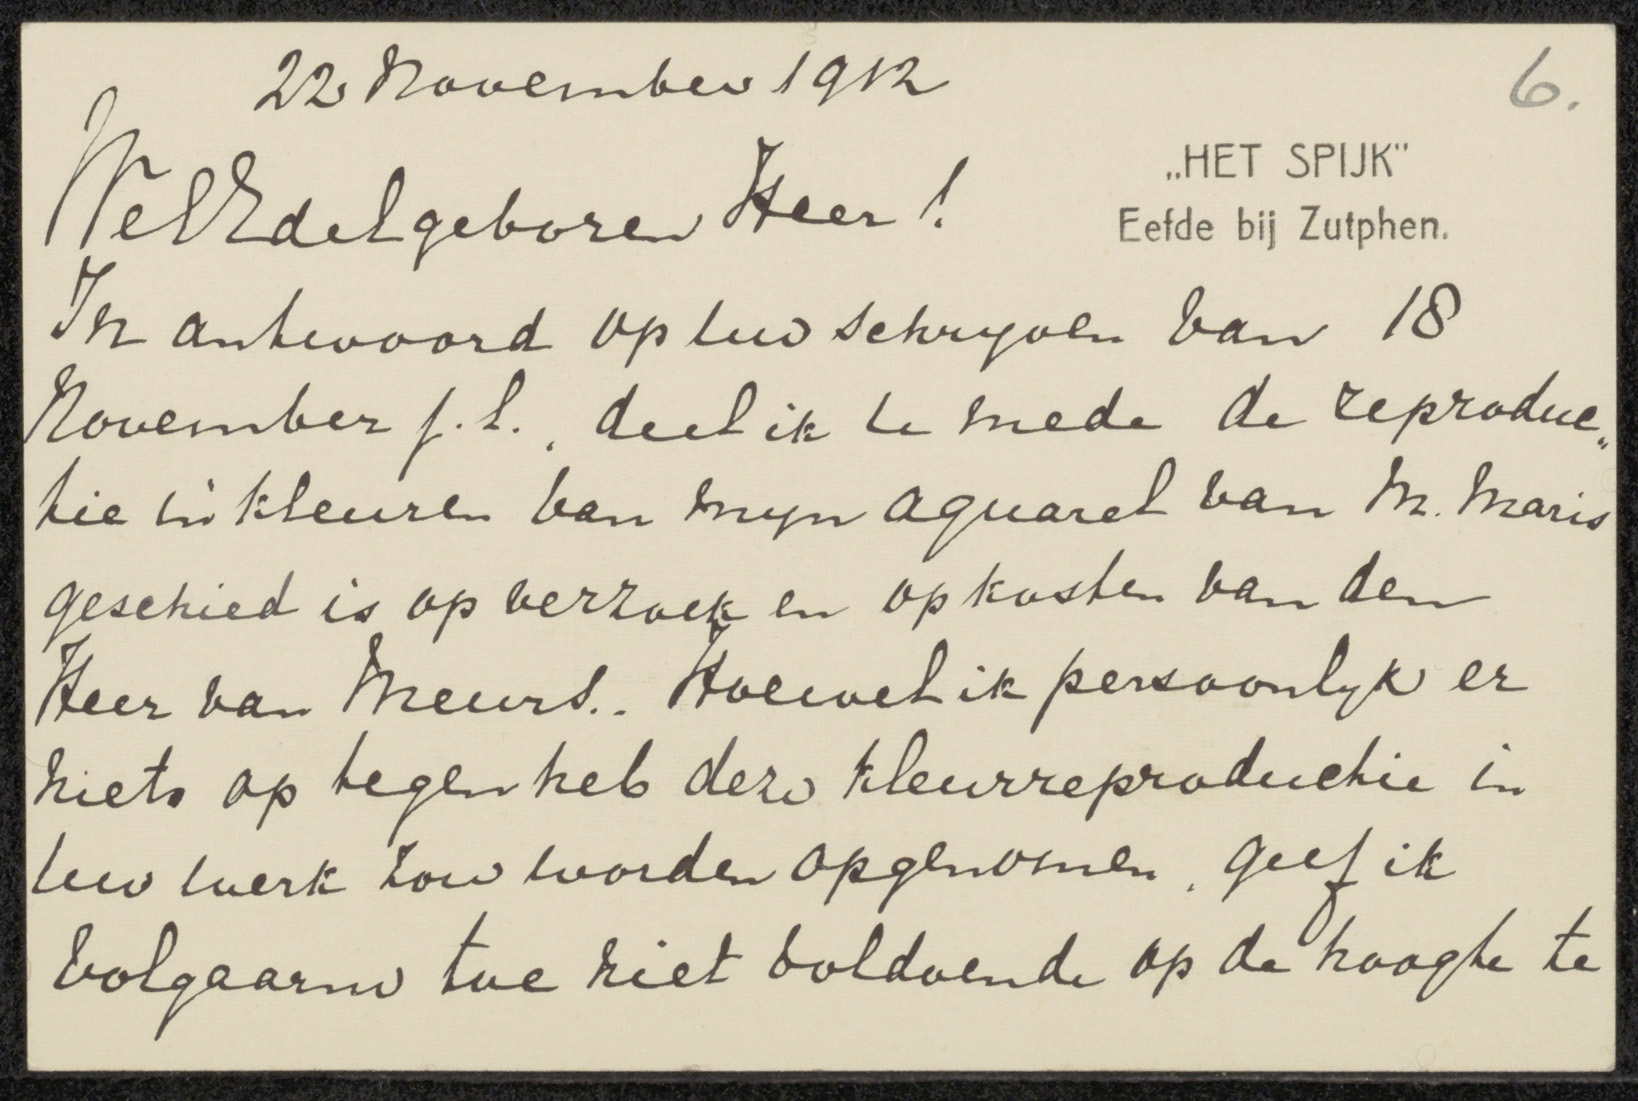 22 November 1912
6.
„HET SPIJK"
Eefde bij Zutphen.
WelEdelgeboren Heer!
In antwoord op uw schryven van 18
November j.l., deel ik U mede de reproduc„
tie in kleuren van myn aquarel van M. Maris
geschied is op verzoek en op kosten van den
Heer van Meurs.. Hoewel ik persoonlyk er
niets op tegen heb deze kleurreproductie in
uw werk zou worden opgenomen, geef ik
volgaarne toe niet voldoende op de hoogte te